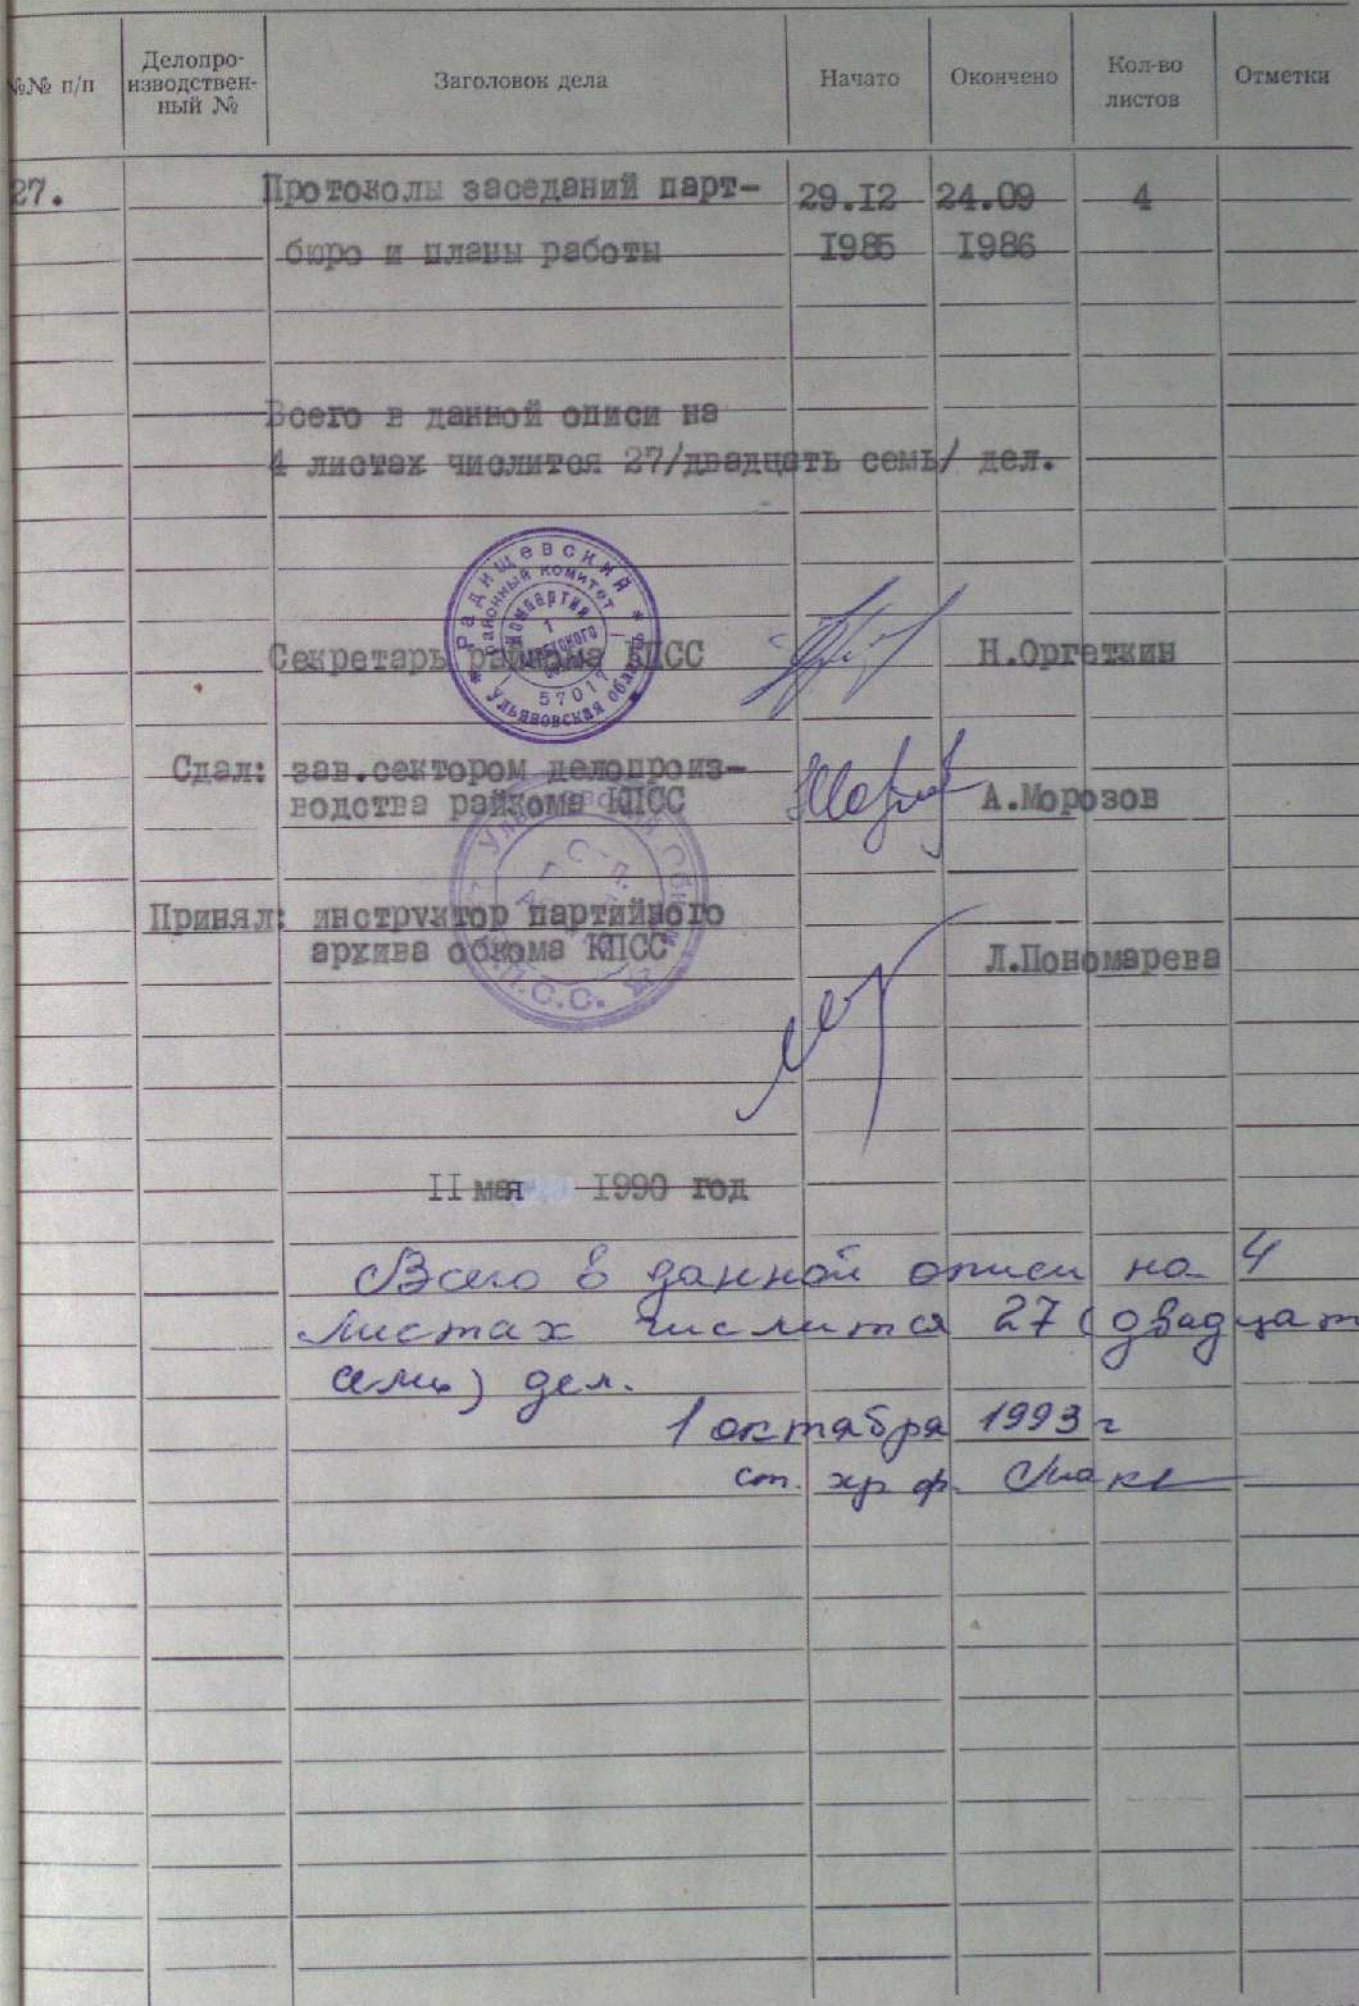 №№ п/п
Делопро-
изводствен-
ный №
Заголовок дела
Начато
Окончено
Кол-во
листов
Отметки
27. Протоколы заседаний парт- 29.12 24.09 4
бюро и планы работы 1985 1986
Всего в данной описи на
4 листах числится 27/двадцать семь/ дел.
* Радищевский * Ульяновская область
районный комитет
Компартия
1
Советского
57017
Секретарь райкома КПСС Н.Оргеткин
Сдал: зав.сектором делопроиз-
водства райкома КПСС А.Морозов
Принял: инструктор партийного
архива обкома КПСС Л.Пономарева
11 мая 1990 год
Всего в данной описи на 4
листах числится 27 (двадцат
семь) дел.
1 октября 1993 г
ст. хр ф.